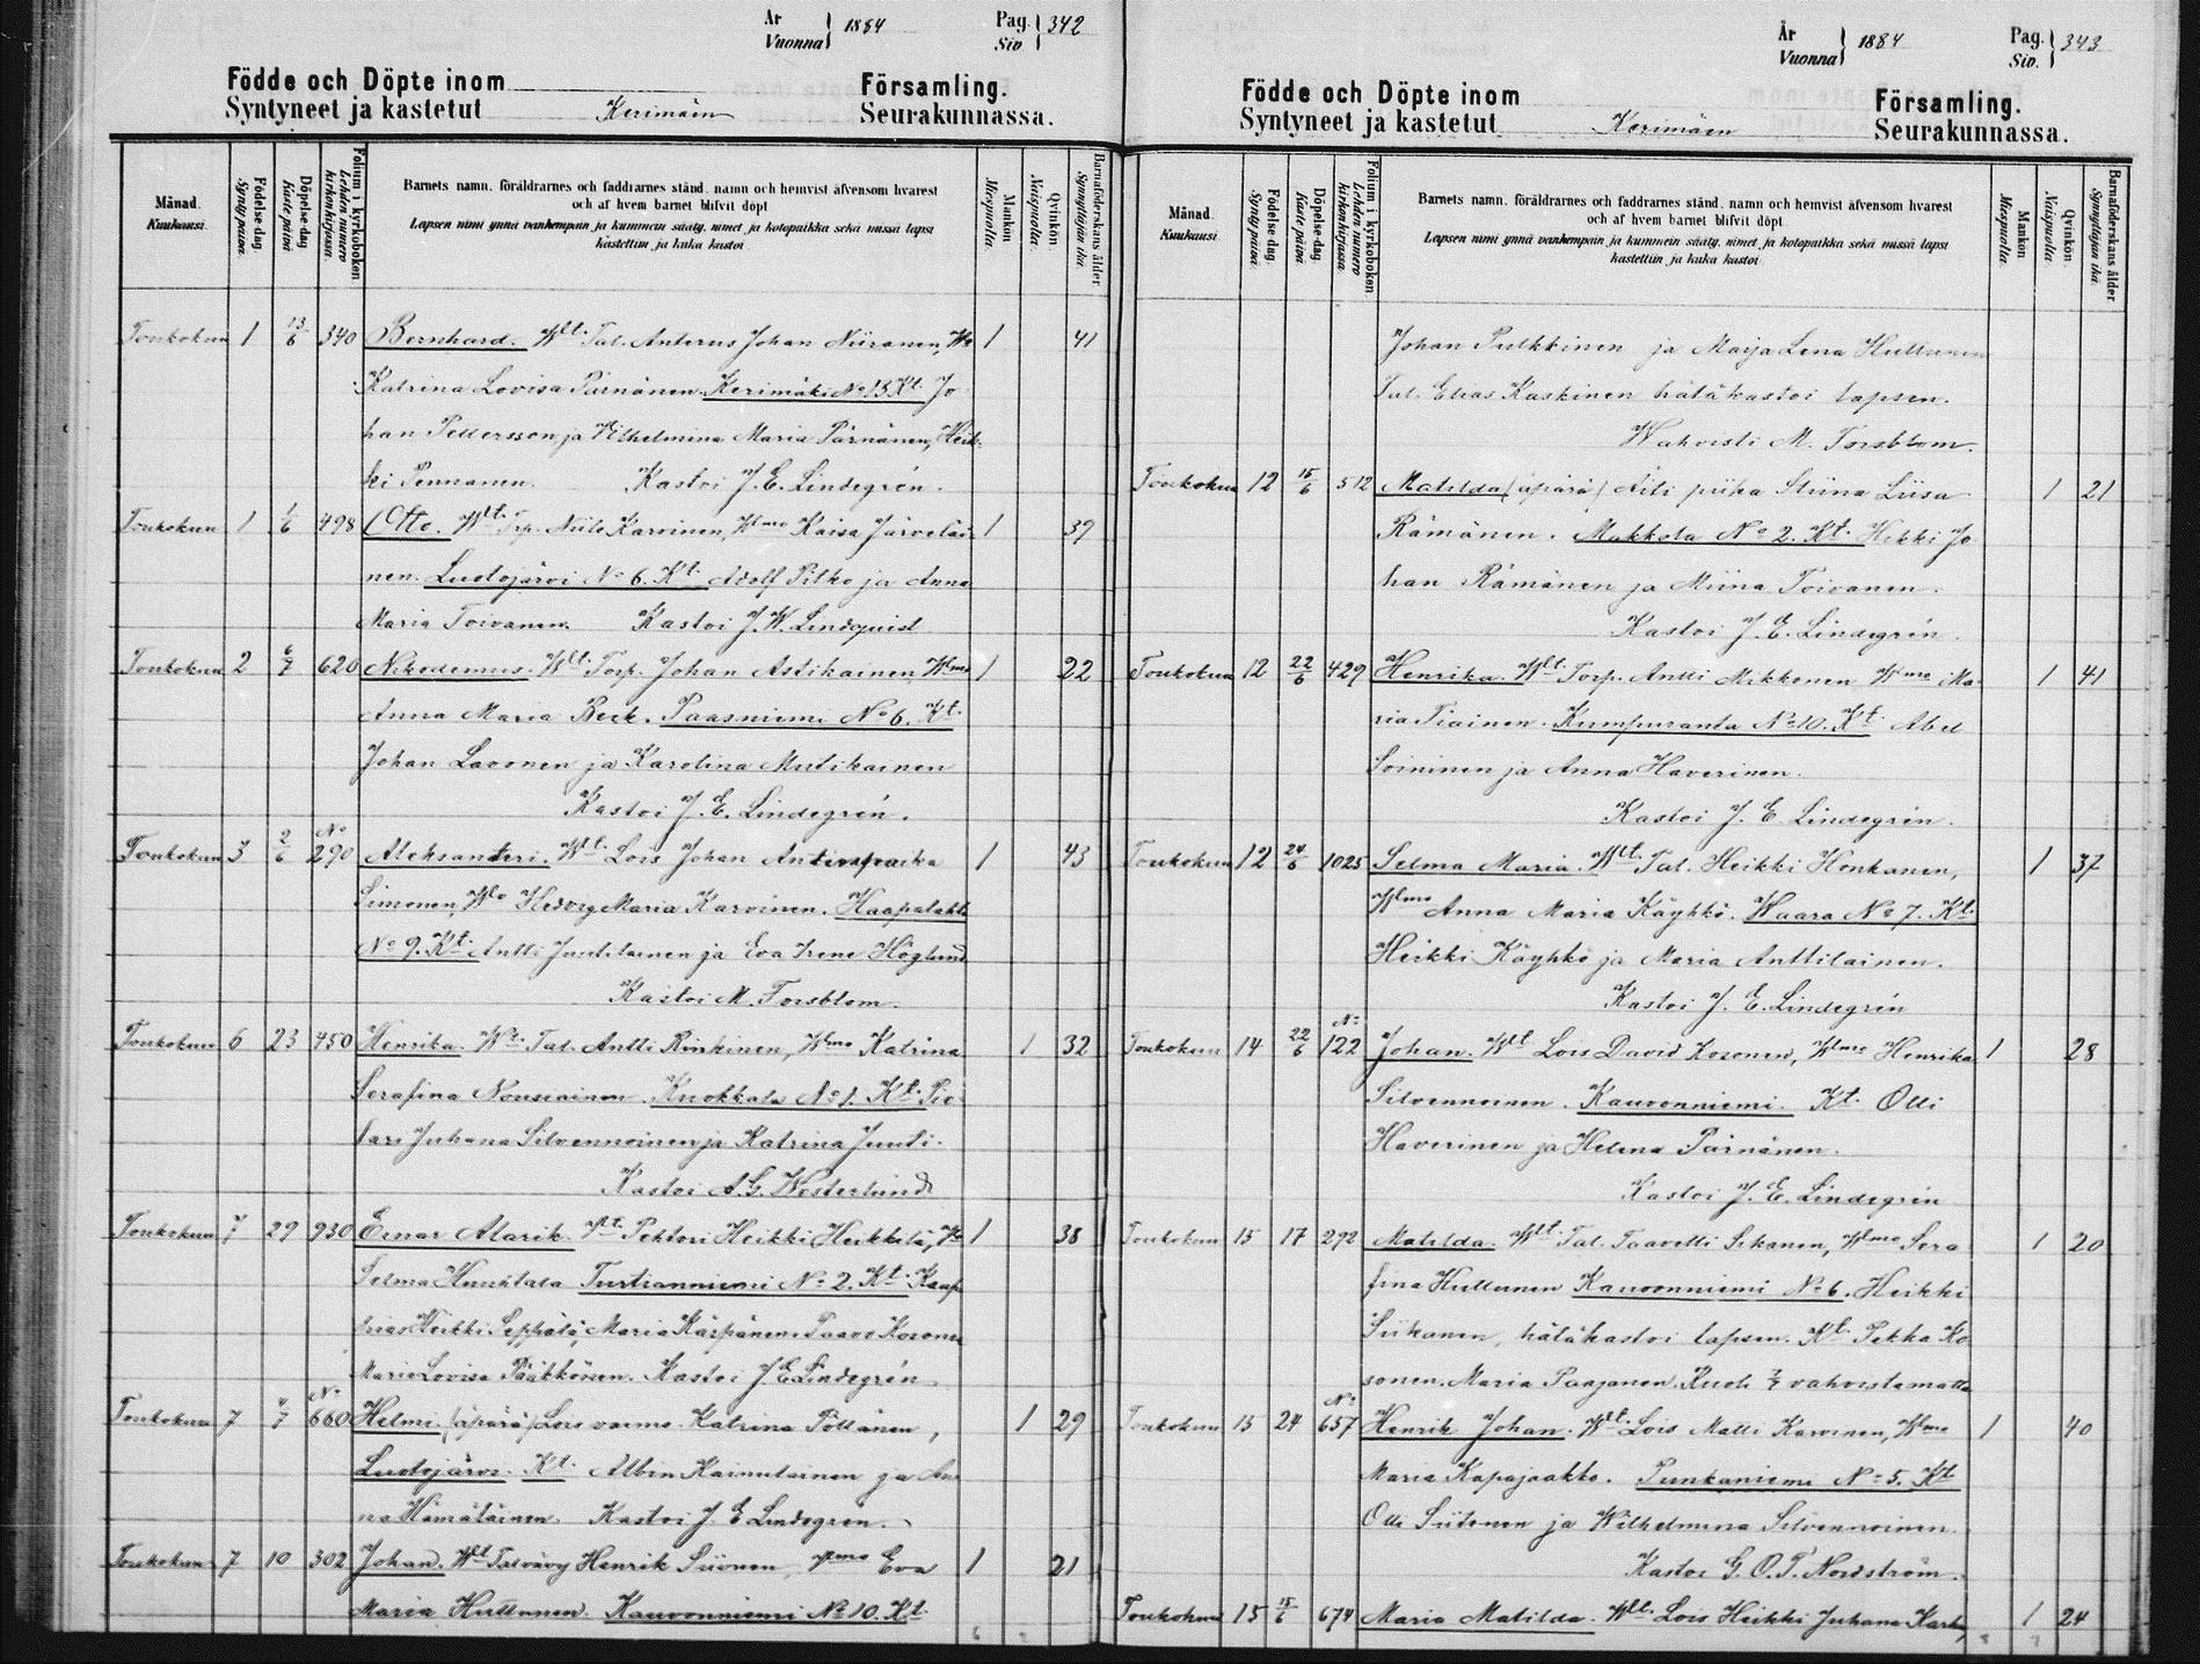 År
Vuonna } 1884
Pag.
Siv } 342
Födde och Döpte inom Församling.
Syntyneet ja kastetut Kerimäen Seurakunnassa.
Månad.
Kuukausi.
Födelse dag.
Synty päivä.
Döpelse-dag
Kaste päivä
Folium i kyrkoboken
Lehden numero kirkonkirjassa.
Barnets namn, föräldrarnes och faddrarnes stånd, namn och hemvist äfvensom hvarest
och af hvem barnet blifvit döpt
Lapsen nimi ynnä vanhempain ja kummein sääty, nimet ja kotopaikka sekä missä lapsi
kastettiin ja kuka kastoi
Mankön
Miespuolia.
Qvinkön
Naispuolia.
Barnaföderskans ålder
Synnyttäjän ikä
Toukokuu 1 13/6 340 Bernhard. Wlt. Tal. Anterus Johan Niiranen, Wo 1 41
Katrina Lovisa Pärnänen. Kerimäki No 15 Kt. Jo
han Pettersson ja Vilhelmina Maria Pärnänen, Heik-
ki Pennanen. Kastoi J. E. Lindegrén.
Toukokuu 1 1/6 498 Otto. Wlt. Trp. Niilo Karvinen, Wlmo Kaisa Järveläi- 1 39
nen. Luotojärvi No 6. Kt. Adolf Pitko ja Anna
Maria Toivanen. Kastoi J. W. Lindquist
Toukokuu 2 6/7 620 Nikodemus. Wlt. Torp. Johan Astikainen Wlmo 1 22
Anna Maria Beck. Paasniemi No 6. Kt.
Johan Lavonen ja Karolina Mutikainen
Kastoi J. E. Lindegrén.
Toukokuu 3 2/6 No 290 Aleksanteri. Wlt. Lois Johan Antinpoika 1 43
Simonen, Wo Hedvig Maria Karvinen. Haapalahti
No 9. Kt. Antti Juutilainen ja Eva Irene Höglund
Kastoi M. Forsblom.
Toukokuu 6 23 450 Henrika. Wt. Tal. Antti Rinkinen, Wlmo Katrina 1 32
Serafina Nousiainen. Kuokkala No 1. Kt. Pie-
tari Juhana Silvennoinen ja Katrina Juuti.
Kastoi A. G. Westerlund
Toukokuu 7 29 930 Einar Alarik. Wt. Pehtori Heikki Heikkilä, Wo 1 38
Selma Huuhtala Turtianniemi No 2. Kt. Kaup
pias Heikki Seppälä, Maria Kärpänen. Paavo Kosonen
Maria Lovisa Pääkkönen. Kastoi J E Lindegrén.
Toukokuu 7 4/7 No 660 Helmi. (äpärä) Lois vaimo Katrina Pöllänen, 1 29
Luotojärvi. Kt. Albin Kainulainen ja An
na Hämäläinen. Kastoi J. E Lindegren.
Toukokuu 7 10 302 Johan. Wlt Talvävy Henrik Siionen, Wmo Eva 1 21
Maria Huttunen. Kauvonniemi No 10. Kt.
År
Vuonna } 1884
Pag.
Siv. } 343
Födde och Döpte inom Församling.
Syntyneet ja kastetut Kerimäen Seurakunnassa.
Månad.
Kuukausi
Födelse dag
Synty päivä.
Döpelse-dag
Kaste päivä
Folium i kyrkoboken
Lehden numero kirkonkirjassa
Barnets namn, föräldrarnes och faddrarnes stånd, namn och hemvist äfvensom hvarest
och af hvem barnet blifvit döpt.
Lapsen nimi ynnä vanhempain ja kummein sääty, nimet, ja kotopaikka sekä missä lapsi
kastettiin ja kuka kastoi
Mankön
Miespuolia.
Qvinkön.
Naispuolia
Barnaföderskans ålder
Synnyttäjän ikä
Johan Pulkkinen ja Maija Lena Huttunen
Tal. Elias Kaskinen hätäkastoi lapsen.
Wahvisti M. Forsblom.
Toukokuu 12 15/6 512 Matilda (äpärä) Äiti piika Stiina Liisa 1 21
Rämänen. Makkola No 2. Kt. Heikki Jo
han Rämänen ja Miina Toivanen.
Kastoi J. E. Lindegrén.
Toukokuu 12 22/6 429 Henrika. Wlt. Torp. Antti Mikkonen Wmo Ma- 1 41
ria Tiainen. Kumpuranta No 10. Kt. Abel
Soininen ja Anna Haverinen.
Kastoi J. E. Lindegrén.
Toukokuu 12 24/6 1025 Selma Maria. Wlt. Tal. Heikki Honkanen, 1 37
Wlmo Anna Maria Käyhkö. Waara No 7. Kt.
Heikki Käyhkö ja Maria Anttilainen.
Kastoi J. E. Lindegrén
Toukokuu 14 22/6 No 122 Johan. Wlt Lois David Kosonen, Wlmo Henrika 1 28
Silvennoinen. Kauvonniemi. Kt. Olli
Haverinen ja Helena Pärnänen.
Kastoi J. E. Lindegrén
Toukokuu 15 17 292 Matilda. Wlt. Tal. Taavetti Sikanen, Wlmo Sera 1 20
fina Huttunen Kauvonniemi No 6. Heikki
Siikanen, hätäkastoi lapsen. Kt. Pekka Ko
sonen. Maria Paajanen. Kuoli 2/7 vahvistamatta
Toukokuu 15 24 No 657 Henrik Johan. Wlt. Lois Matti Karvinen, Wlmo 1 40
Maria Kapajaakko. Punkaniemi No 5. Kt
Olli Siitonen ja Wilhelmina Silvennoinen.
Kastoi G. O. T. Nordström.
Toukokuu 15 15/6 674 Maria Matilda. Wlt. Lois Heikki Juhana Karhu, 1 24